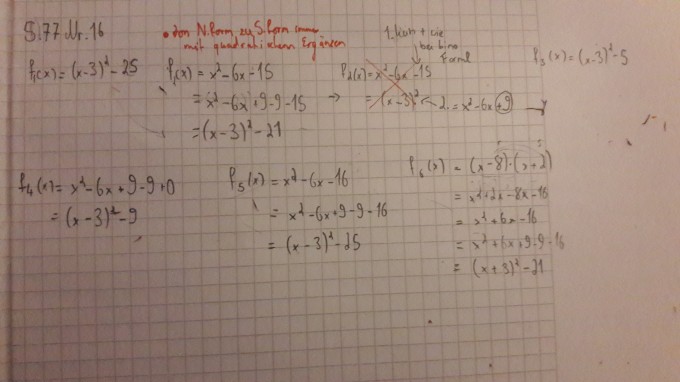 S.77 Nr. 16
• von N.Form zu S.Form immer
mit quadratischem Ergänzen
1. bin
bei bino
Forml
f₁(x) = (x-3)² - 25
f₁(x) = x² - 6x - 15
= x² - 6x + 9 - 9 - 15
= (x-3)² - 21
→
f₂(x) = x² - 6x - 15
= (x-3)² 2. = x² - 6x + 9
f₃(x) = (x-3)² - 5
f₄(x) = x² - 6x + 9 - 9 + 0
= (x-3)² - 9
f₅(x) = x² - 6x - 16
= x² - 6x + 9 - 9 - 16
= (x-3)² - 25
f₆(x) = (x-8)·(x+2)
= x² + 2x - 8x - 16
= x² + 6x - 16
= x² + 6x + 9 - 9 - 16
= (x+3)² - 21